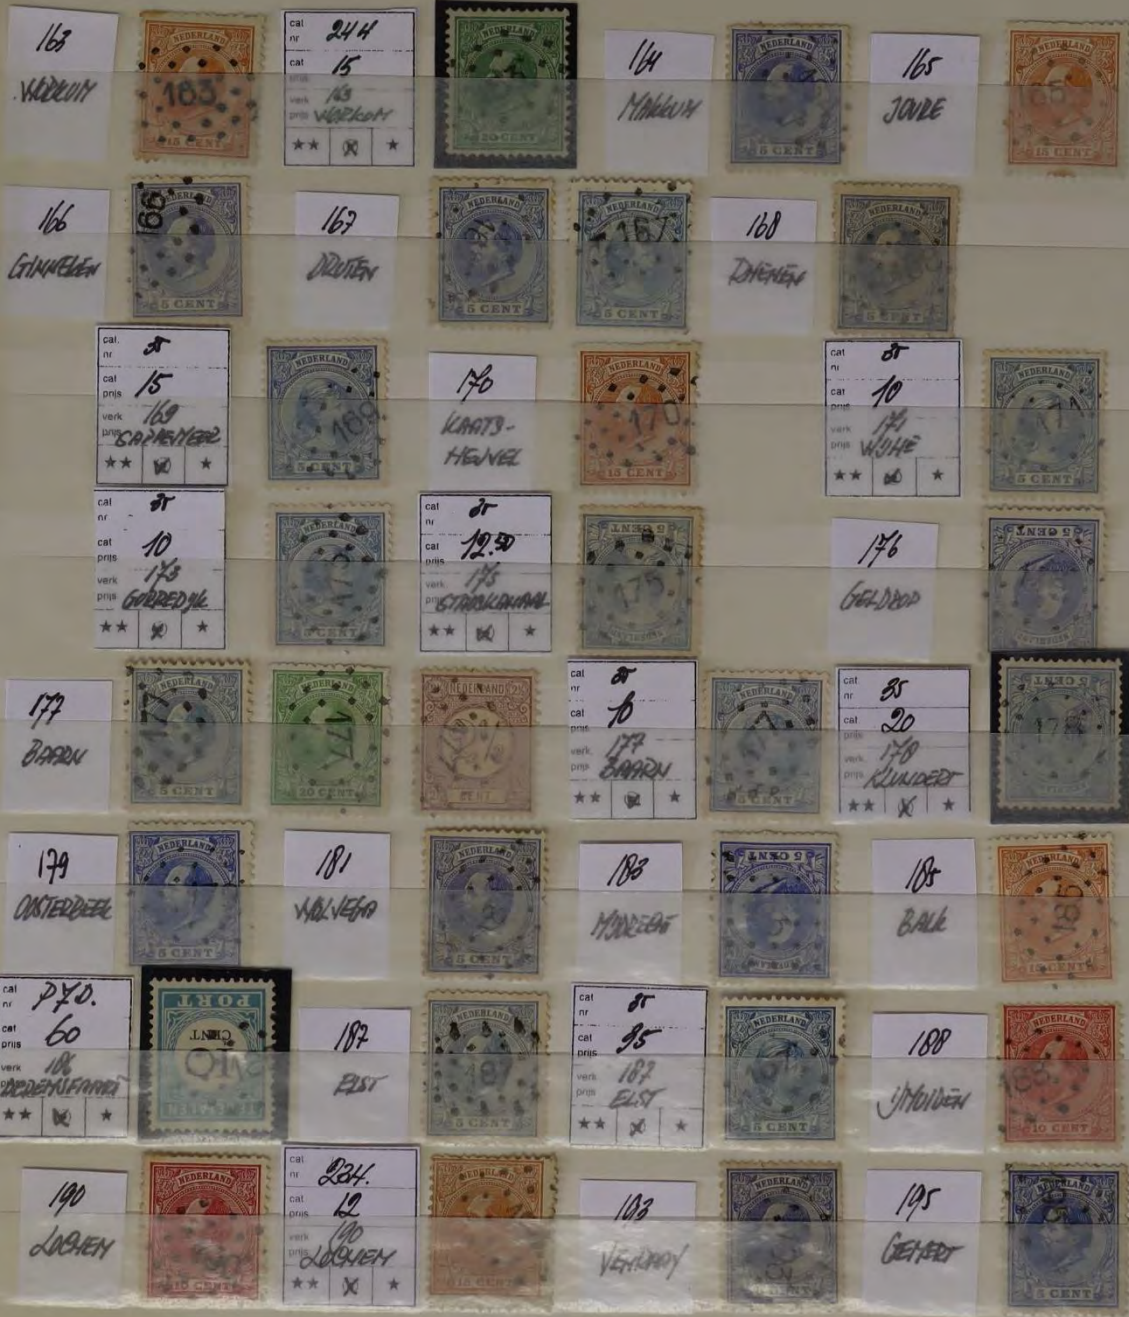 163
WORKUM
NEDERLAND
163
15 CENT
cat
nr
24H
cat
prijs
15
verk
prijs
163
WORKUM
★★
★
NEDERLAND
20 CENT
164
MAKKUM
NEDERLAND
5 CENT
165
JOURE
NEDERLAND
165
15 CENT
166
GINNEKEN
166
NEDERLAND
5 CENT
167
DRUTEN
NEDERLAND
5 CENT
NEDERLAND
167
5 CENT
168
RHENEN
NEDERLAND
5 CENT
cat.
nr
35
cat
prijs
15
verk
prijs
169
SAPPEMEER
★★
★
NEDERLAND
169
5 CENT
170
KAATS-
HEUVEL
NEDERLAND
170
15 CENT
cat
nr
35
cat
prijs
10
verk
prijs
171
WIJHE
★★
★
NEDERLAND
171
5 CENT
cat
nr
35
cat
prijs
10
verk
prijs
173
GORREDIJK
★★
★
NEDERLAND
173
5 CENT
cat
nr
35
cat
prijs
12.50
verk
prijs
175
STADSKANAAL
★★
★
5 CENT
175
NEDERLAND
176
GELDROP
5 CENT
NEDERLAND
177
BAARN
NEDERLAND
177
5 CENT
NEDERLAND
177
20 CENT
2½ NEDERLAND 2½
CENT
cat
nr
35
cat
prijs
10
verk
prijs
177
BAARN
★★
★
NEDERLAND
177
5 CENT
cat
nr
35
cat
prijs
20
verk
prijs
178
KLUNDERT
★★
★
5 CENT
178
179
OOSTERBEEK
NEDERLAND
5 CENT
181
WOLVEGA
NEDERLAND
5 CENT
183
MIJDRECHT
5 CENT
185
BALK
NEDERLAND
185
15 CENT
cat
nr
P7D.
cat
prijs
60
verk
prijs
186
DEDEMSVAART
★★
★
PORT
CENT
10
TE BETALEN
187
ELST
NEDERLAND
187
5 CENT
cat
nr
35
cat
prijs
35
verk
prijs
187
ELST
★★
★
NEDERLAND
5 CENT
188
IJMUIDEN
NEDERLAND
188
10 CENT
190
LOCHEM
NEDERLAND
10 CENT
cat
nr
23H.
cat
prijs
12
verk
prijs
190
LOCHEM
★★
★
NEDERLAND
15 CENT
193
VENRAAY
NEDERLAND
195
GEMERT
NEDERLAND
5 CENT